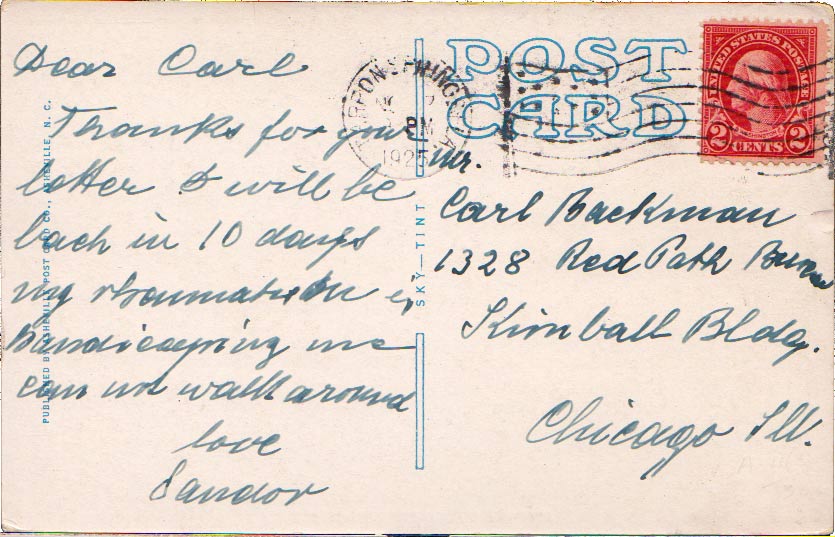 Dear Carl
Thanks for your
letter I will be
back in 10 days
my rheumatism is
handicaping me
can not walk around
love
Sandor
PUBLISHED BY ASHEVILLE POST CARD CO., ASHEVILLE, N. C.
SKY—TINT
POST
CARD
TARPON SPRINGS, FLA
PM
1925
UNITED STATES POSTAGE
2 CENTS 2
Mr.
Carl Backman
1328 Red Path
Kimball Bldg.
Chicago Ill.